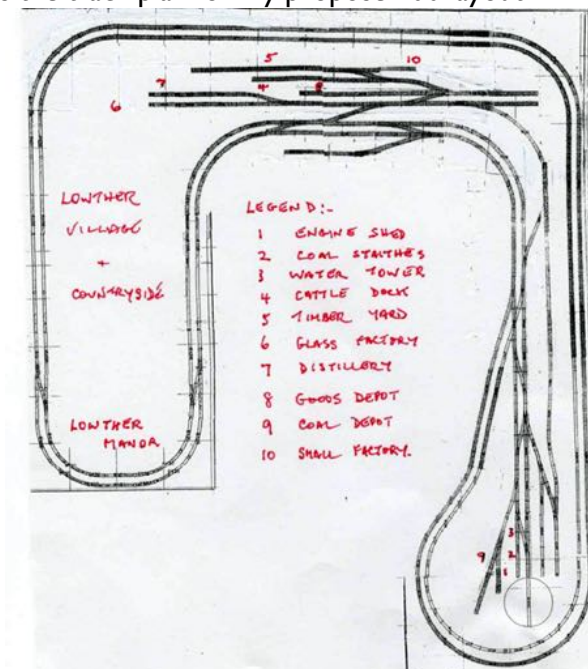 5
10
7
4
8
6
LOWTHER
VILLAGE
+
COUNTRYSIDE
LEGEND:-
1 ENGINE SHED
2 COAL STAITHES
3 WATER TOWER
4 CATTLE DOCK
5 TIMBER YARD
6 GLASS FACTORY
7 DISTILLERY
8 GOODS DEPOT
9 COAL DEPOT
10 SMALL FACTORY.
LOWTHER
MANOR
3
9
2
1